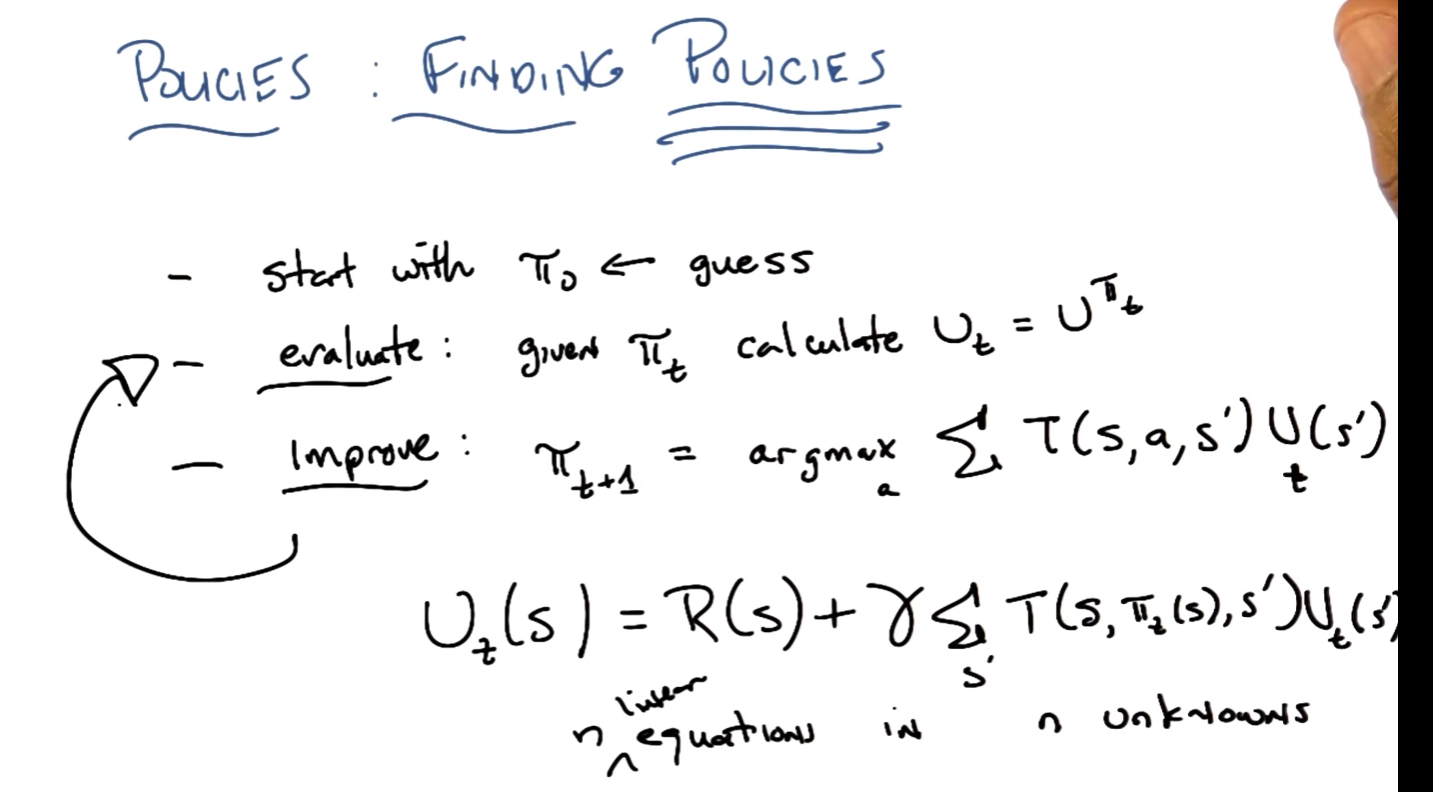 POLICIES : FINDING POLICIES
- start with π₀ ← guess
- evaluate: given π_t calculate U_t = U^π_t
- Improve: π_t+1 = argmax_a Σ T(s,a,s') U_t(s')
U_t(s) = R(s) + γ Σ_s' T(s, π_t(s), s') U_t(s')
n ^ linear equations in n unknowns